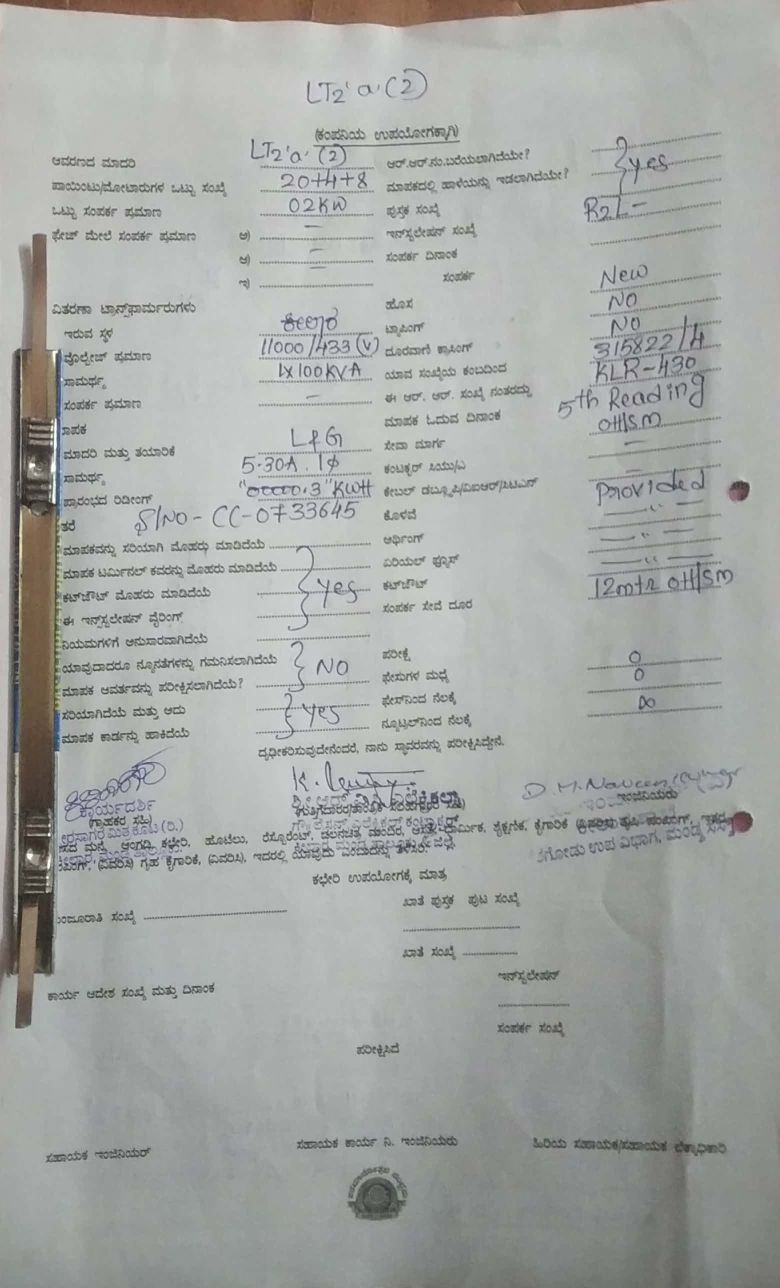 LT2'a'(2)
(ಕಂಪನಿಯ ಉಪಯೋಗಕ್ಕಾಗಿ)
ಆವರಣದ ಮಾದರಿ LT2'a'(2) ಆರ್.ಆರ್.ನಂ.ಬರೆಯಲಾಗಿದೆಯೇ? yes
ಪಾಯಿಂಟು/ಮೋಟಾರುಗಳ ಒಟ್ಟು ಸಂಖ್ಯೆ 20+4+8 ಮಾಪಕದಲ್ಲಿ ಹಾಳೆಯನ್ನು ಇಡಲಾಗಿದೆಯೇ?
ಒಟ್ಟು ಸಂಪರ್ಕ ಪ್ರಮಾಣ 02KW ಪುಸ್ತಕ ಸಂಖ್ಯೆ R2L-
ಫೇಜ್ ಮೇಲೆ ಸಂಪರ್ಕ ಪ್ರಮಾಣ ಅ) – ಇನ್‌ಸ್ಟಲೇಷನ್ ಸಂಖ್ಯೆ
ಆ) – ಸಂಪರ್ಕ ದಿನಾಂಕ
ಇ) – ಸಂಪರ್ಕ
ವಿತರಣಾ ಟ್ರಾನ್ಸ್‌ಫಾರ್ಮರುಗಳು ಹೊಸ New
ಇರುವ ಸ್ಥಳ ಟ್ಯಾಪಿಂಗ್ NO
ವೋಲ್ಟೇಜ್ ಪ್ರಮಾಣ 11000/433(V) ದೂರವಾಣಿ ಕ್ರಾಸಿಂಗ್ NO
ಸಾಮರ್ಥ್ಯ 1x100KVA ಯಾವ ಸಂಖ್ಯೆಯ ಕಂಬದಿಂದ 315822/4
ಸಂಪರ್ಕ ಪ್ರಮಾಣ – ಈ ಆರ್. ಆರ್. ಸಂಖ್ಯೆ ನಂತರದ್ದು KLR-430
ಮಾಪಕ ಓದುವ ದಿನಾಂಕ 5th Reading
ಮಾದರಿ ಮತ್ತು ತಯಾರಿಕೆ L&G ಸೇವಾ ಮಾರ್ಗ OH/SM
ಸಾಮರ್ಥ್ಯ 5-30A. 1ϕ ಕಂಟಕ್ಟರ್ ಸಿಯು/ಎ –
ಪ್ರಾರಂಭದ ರಿಡೀಂಗ್ "00000.3" KWH ಕೇಬಲ್ ಡಬ್ಲ್ಯೂಪಿ/ವಿಐಆರ್/ಸಿಟಿಎನ್ –
S/NO- CC-0733645 ಕೊಳವೆ Provided
ಮಾಪಕವನ್ನು ಸರಿಯಾಗಿ ಮೊಹರು ಮಾಡಿದೆಯೆ ಅರ್ಥಿಂಗ್ – " –
ಮಾಪಕ ಟರ್ಮಿನಲ್ ಕವರನ್ನು ಮೊಹರು ಮಾಡಿದೆಯೆ ಏರಿಯಲ್ ಫ್ಯೂಸ್ – " –
ಕಟ್‌ಔಟ್ ಮೊಹರು ಮಾಡಿದೆಯೆ yes ಕಟ್‌ಔಟ್ – " –
ಈ ಇನ್ಸ್‌ಟಲೇಷನ್ ವೈರಿಂಗ್ ಸಂಪರ್ಕ ಸೇವೆ ದೂರ 12mtr OH/SM
ನಿಯಮಗಳಿಗೆ ಅನುಸಾರವಾಗಿದೆಯೆ
ಯಾವುದಾದರೂ ನ್ಯೂನತೆಗಳನ್ನು ಗಮನಿಸಲಾಗಿದೆಯೆ NO ಪರೀಕ್ಷೆ
ಮಾಪಕ ಆವರ್ತವನ್ನು ಪರೀಕ್ಷಿಸಲಾಗಿದೆಯೆ? ಫೇಸುಗಳ ಮಧ್ಯೆ 0
ಸರಿಯಾಗಿದೆಯೆ ಮತ್ತು ಅದು yes ಫೇಸ್‌ನಿಂದ ನೆಲಕ್ಕೆ 0
ಮಾಪಕ ಕಾರ್ಡನ್ನು ಹಾಕಿದೆಯೆ ನ್ಯೂಟ್ರಲ್‌ನಿಂದ ನೆಲಕ್ಕೆ ∞
ದೃಢೀಕರಿಸುವುದೇನೆಂದರೆ, ನಾನು ಸ್ಥಾವರವನ್ನು ಪರೀಕ್ಷಿಸಿದ್ದೇನೆ.
ಕಾರ್ಯದರ್ಶಿ
(ಗ್ರಾಹಕರ ಸಹಿ) ಇಂಜಿನಿಯರು
ಮನೆ, ಅಂಗಡಿ, ಕಛೇರಿ, ಹೊಟೇಲು, ರೆಸ್ಟೊರೆಂಟ್, ಚಲನಚಿತ್ರ ಮಂದಿರ, ಶೈಕ್ಷಣಿಕ, ಕೈಗಾರಿಕೆ
(ವಿವರಿಸಿ) ಗೃಹ ಕೈಗಾರಿಕೆ, (ವಿವರಿಸಿ), ಇದರಲ್ಲಿ ಯಾವುದು
ಕಛೇರಿ ಉಪಯೋಗಕ್ಕೆ ಮಾತ್ರ
ಸಂಖ್ಯೆ ಖಾತೆ ಪುಸ್ತಕ ಪುಟ ಸಂಖ್ಯೆ
ಖಾತೆ ಸಂಖ್ಯೆ
ಕಾರ್ಯ ಆದೇಶ ಸಂಖ್ಯೆ ಮತ್ತು ದಿನಾಂಕ ಇನ್‌ಸ್ಟಲೇಷನ್
ಸಂಪರ್ಕ ಸಂಖ್ಯೆ
ಪರೀಕ್ಷಿಸಿದೆ
ಸಹಾಯಕ ಇಂಜಿನಿಯರ್ ಸಹಾಯಕ ಕಾರ್ಯ ನಿ. ಇಂಜಿನಿಯರು ಹಿರಿಯ ಸಹಾಯಕ/ಸಹಾಯಕ ಲೆಕ್ಕಾಧಿಕಾರಿ